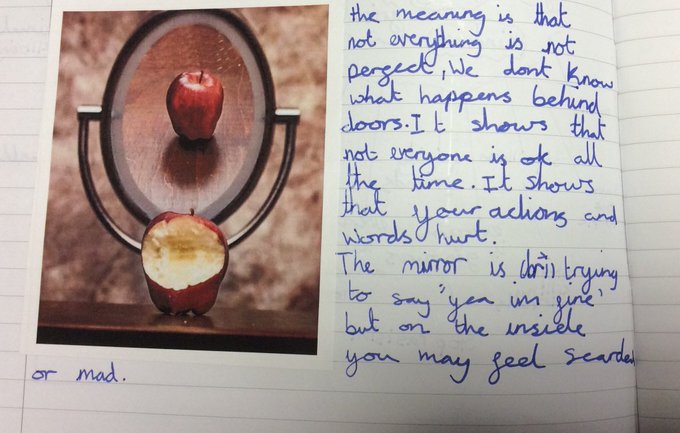 the meaning is that
not everything is not
pergect, We dont know
what happens behind
doors. It shows that
not everyone is ok all
the time. It shows
that your actions and
words hurt.
The mirror is trying
to say "yea im gine"
but on the inside
you may geel scarded
or mad.